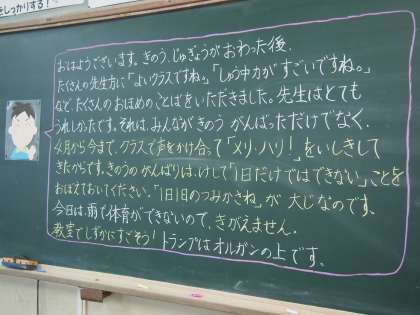 をしっかりする！
おはようございます。きのう、じゅぎょうがおわった後、
たくさんの先生方に「よいクラスですね。」「しゅう中力がすごいですね。」
など、たくさんのおほめのことばをいただきました。先生はとても
うれしかったです。それは、みんながきのう がんばっただけでなく、
4月から今まで、クラスで声をかけ合って「メリ・ハリ！」をいしきして
きたからです。きのうのがんばりは、けして「1日だけではできない」ことを
おぼえておいてください。「1日1日のつみかさね」が 大じなのです。
今日は、雨で体育ができないので、きがえません。
教室でしずかにすごそう！ トランプはオルガンの上です。